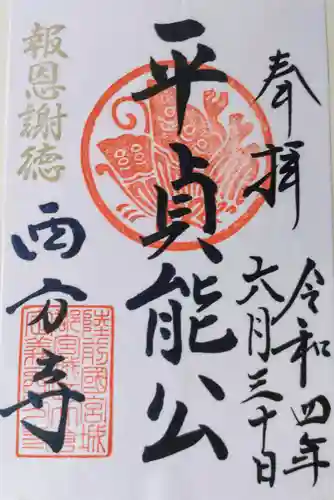 奉拝
令和四年
六月三十日
平貞能公
報恩謝徳
西方寺